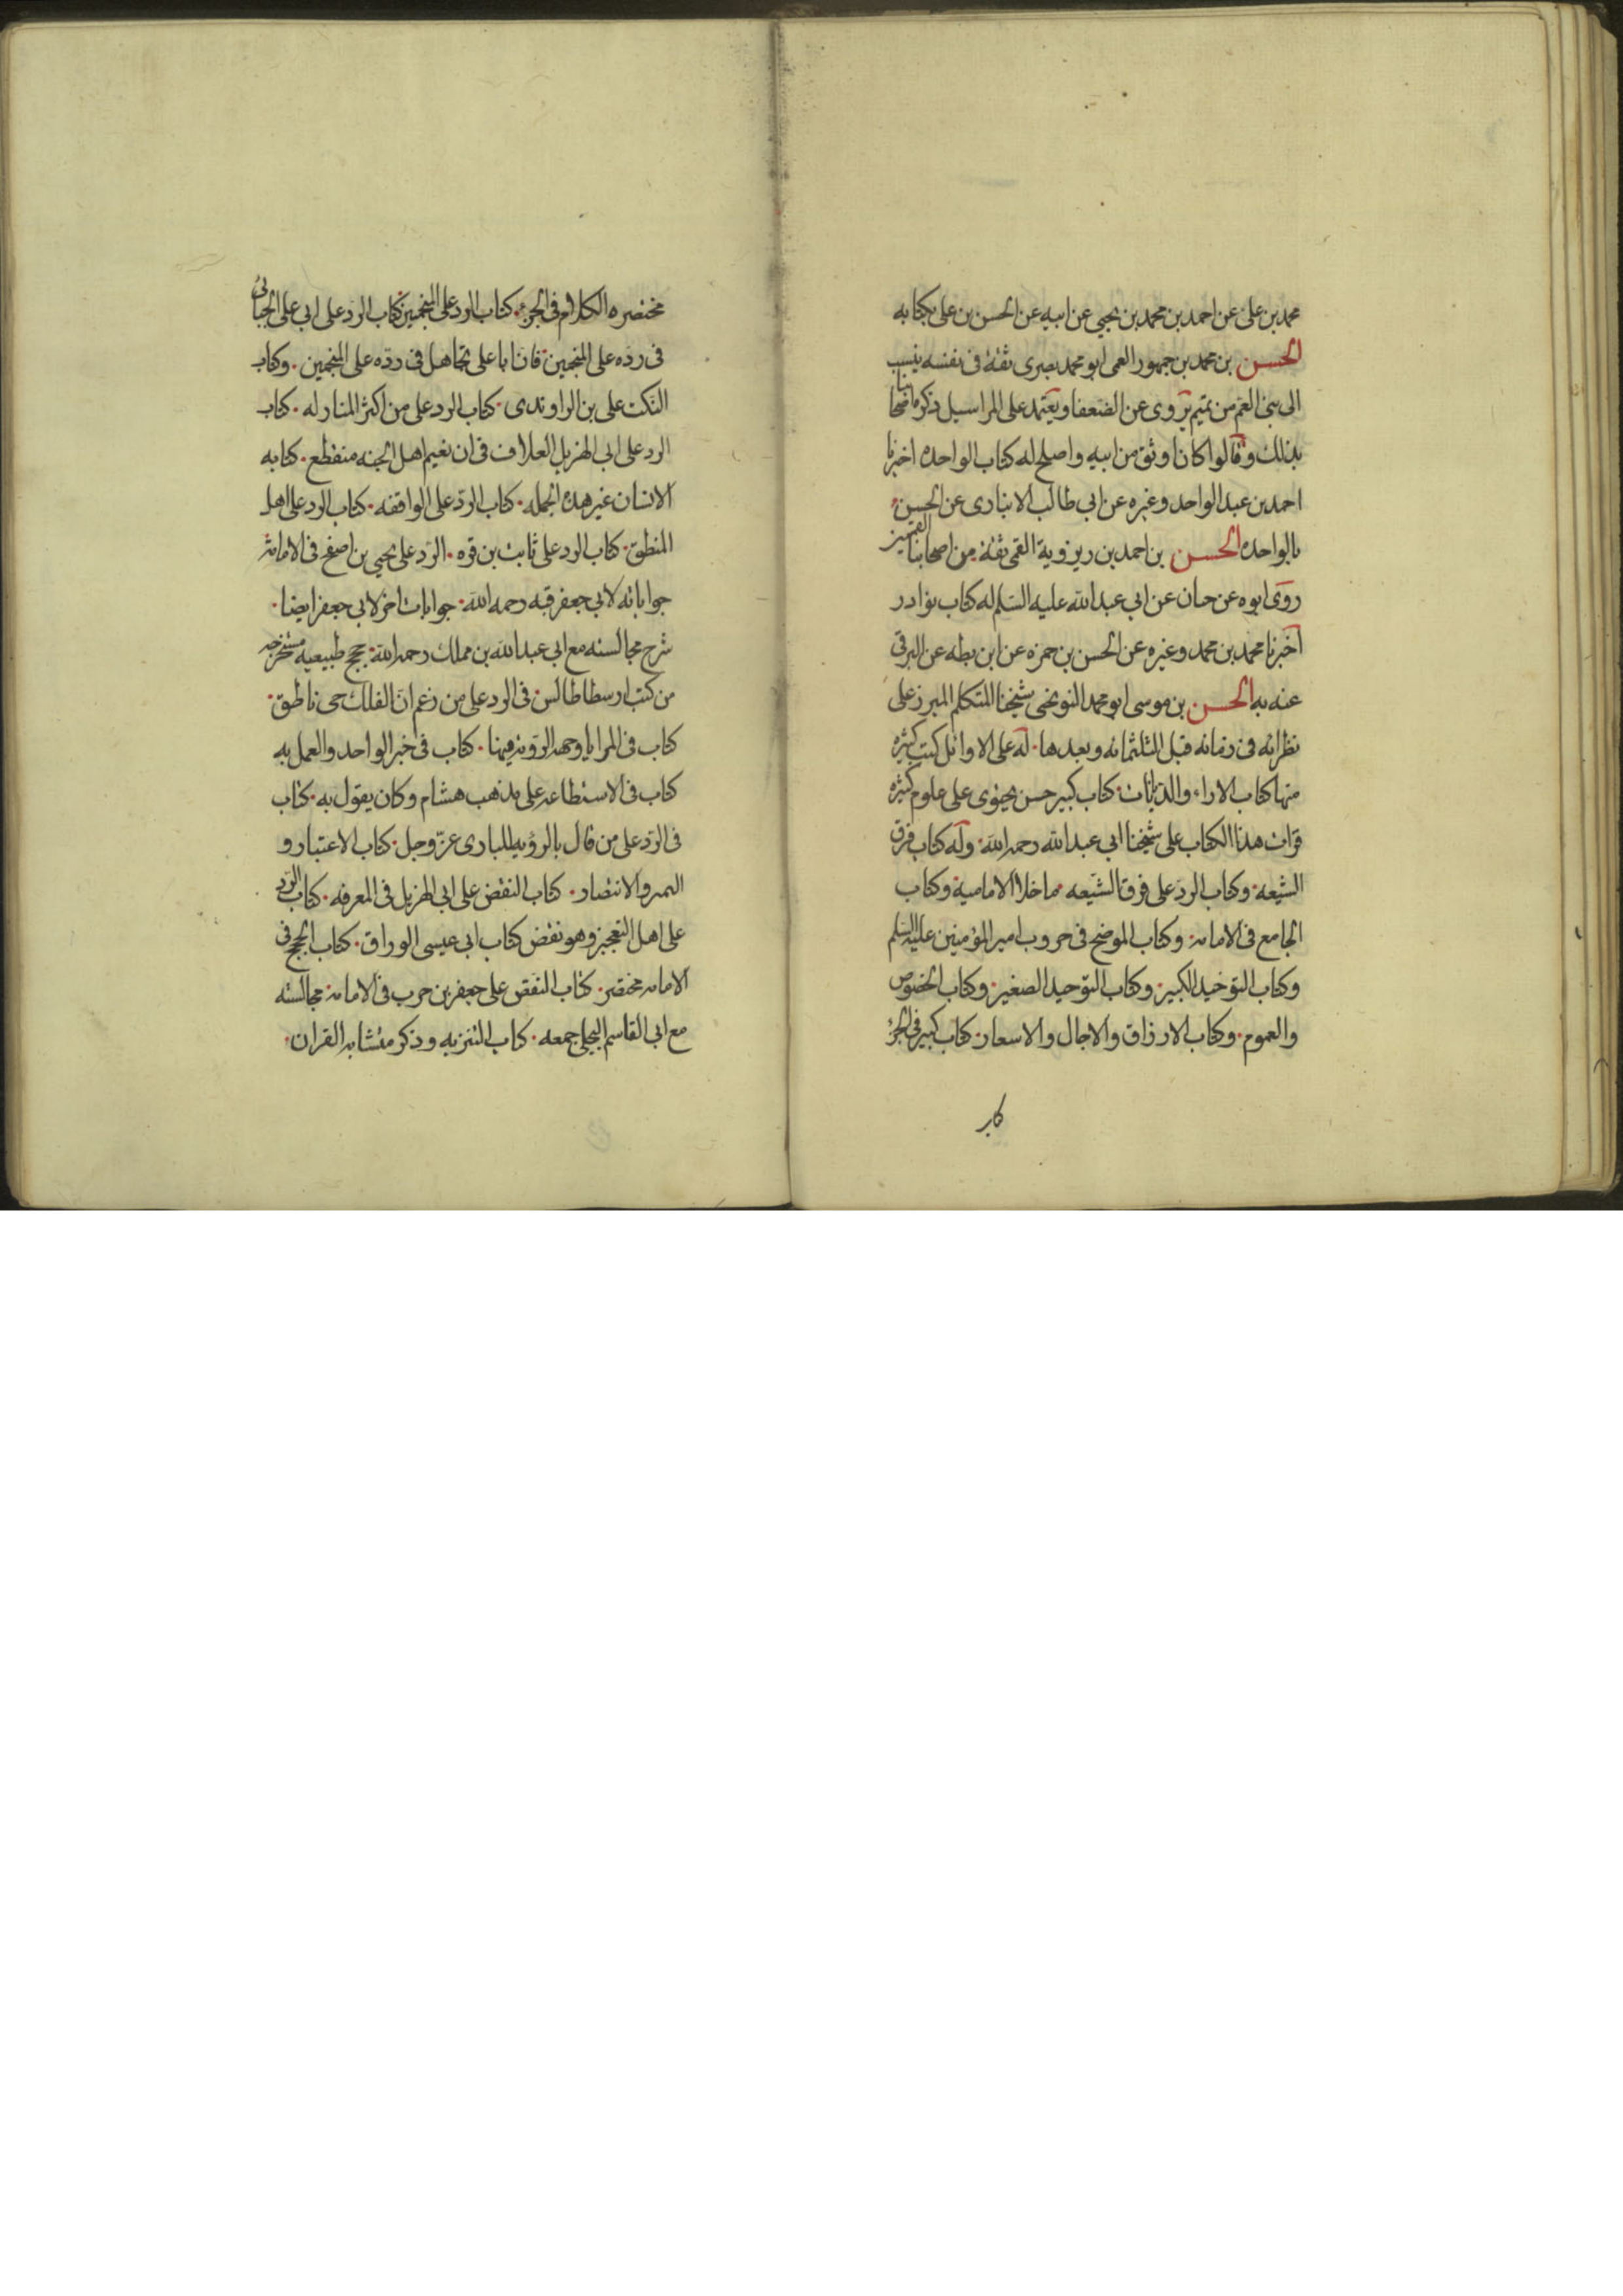 محمد بن على عن احمد بن محمد بن يحيى عن ابيه عن الحسن بن على بكتابه
الحسن بن محمد بن جمهور العمى ابو محمد بصرى ثقة فى نفسه ينسب
الى بنى العم من تميم يروى عن الضعفا ويعتمد على المراسيل ذكره اصحابنا
بذلك وقالوا كان اوثق من ابيه واصلح له كتاب الواحده اخبرنا
احمد بن عبد الواحد وغيره عن ابى طالب الانبارى عن الحسن
بالواحده الحسن بن احمد بن ريزوية القمى ثقة من اصحابنا القميين
روى ابوه عن حنان عن ابى عبد الله عليه السلم له كتاب نوادر
اخبرنا محمد بن محمد وغيره عن الحسن بن حمزه عن ابن بطه عن البرقى
عنه به الحسن بن موسى ابو محمد النوبختى شيخنا المتكلم المبرز على
نظرائه فى زمانه قبل الثلثمائه وبعدها · له على الاوائل كتب كثيره
منها كتاب الاراء والديانات · كتاب كبير حسن يحتوى على علوم كثيره
قرات هذا الكتاب على شيخنا ابى عبد الله رحمه الله · وله كتاب فرق
الشيعه · وكتاب الرد على فرق الشيعه ما خلا الامامية وكتاب
الجامع فى الامامه · وكتاب الموضح فى حروب امير المؤمنين عليه السلم
وكتاب التوحيد الكبير · وكتاب التوحيد الصغير · وكتاب الخصوص
والعموم · وكتاب الارزاق والاجال والاسعار · كتاب كبير فى الجزء
مختصره الكلام فى الجزء · كتاب الرد على المنجمين · كتاب الرد على ابى على الجبائى
فى رده على المنجمين · فان ابا على تجاهل فى رده على المنجمين · وكتاب
النكت على بن الراوندى · كتاب الرد على من اكثر المنازله · كتاب
الرد على ابى الهزيل العلاف فى ان نعيم اهل الجنه منقطع · كتابه
الانسان غير هذه الجمله · كتاب الرد على الواقفه · كتاب الرد على اهل
المنطق · كتاب الرد على ثابت بن قره · الرد على يحيى بن اصفح فى الامامة
جواباته لابى جعفر قبه رحمه الله · جوابات اخر لابى جعفر ايضا ·
شرح مجالسته مع ابى عبد الله بن مملك رحمه الله · حجج طبيعيه مستخرجه
من كتب ارسطاطالس · فى الرد على من زعم ان الفلك حى ناطق ·
كتاب فى المرايا وجهه الرؤيه فيها · كتاب فى خبر الواحد والعمل به
كتاب فى الاستطاعه على مذهب هشام وكان يقول به · كتاب
فى الرد على من قال بالرؤيه للبارى عز وجل · كتاب الاعتبار و
والانتصار · كتاب النقض على ابى الهزيل فى المعرفه · كتاب الرد
على اهل التعجيز وهو نقض كتاب ابى عيسى الوراق · كتاب الحجج فى
الامامه مختصر · كتاب النقض على جعفر بن حرب فى الامامه · مجالسته
مع ابى القاسم البجلى جمعه · كتاب التنزيه وذكر متشابه القران ·